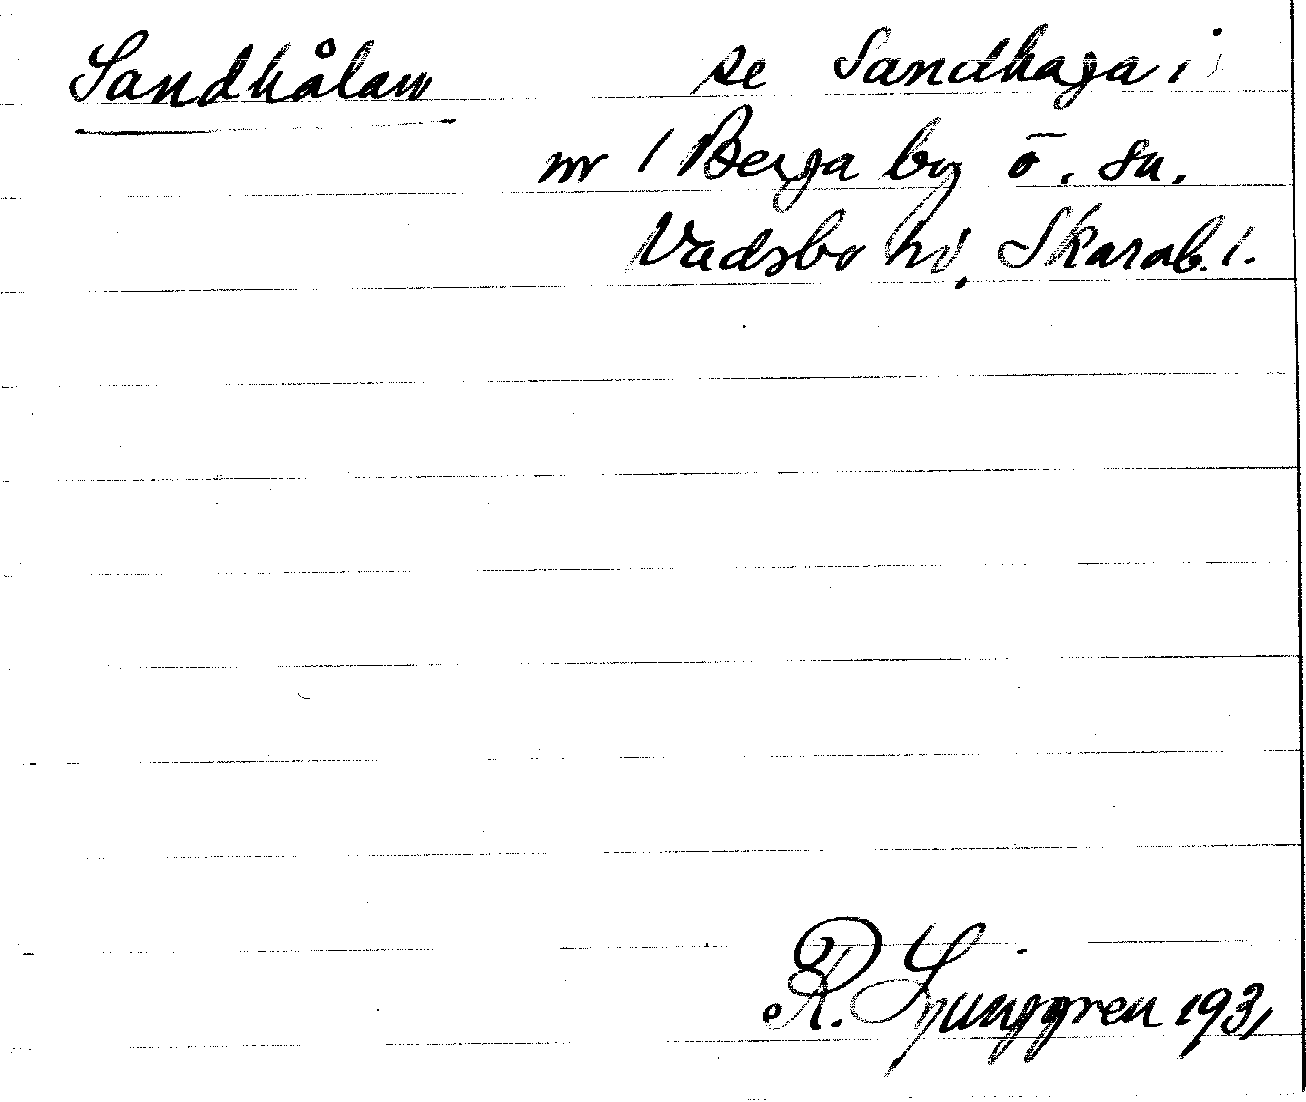 Sandhålan se Sandhaga i
nr 1 Berga by ö. sn.
Vadsbo hd, Skarab. l.
R. Ljunggren 1931